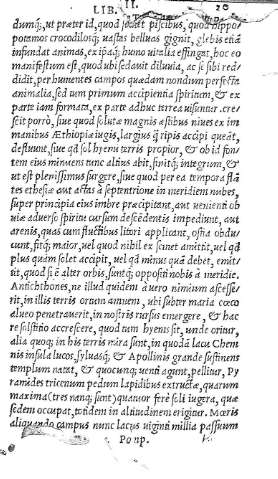 LIB. II. 20
dumq́;, ut præter id, quod sentit piscibus, quod hippo-
potamos crocodilosq́; uastas belluas gignit, glebis etiã
infundat animas, ex ipaq́; humo uitalia effingat, hoc eo
manifestum est, quod ubi sedauit diluuia, ac se sibi red
didit, per humentes campos quædam nondum perfecta
animalia, sed tum primum accipientia spiritum, & ex
parte iam formata, ex parte adhuc terrea uisuntur. cres
scit porrò, siue quod solutæ magnis æstibus niues ex im
manibus Æthiopiæ iugis, largius q̃ ripis accipi queãt,
defluunt, siue qđ sol hyeme terris propior, & ob id fon-
tem eius minuens tunc altius abit, sinitq́; integrum, &
ut est plenissimus surgere, siue quod per ea tempora flã
tes ethesiæ aut actas à septentrione in meridiem nubes,
super principia eius imbre præcipitant, aut uenienti ob
uiæ aduerso spiritu cursum descẽdentis impediunt, aut
arenis, quas cum fluctibus litori applicant, ostia obdu-
cunt, fitq́; maior, uel quod nihil ex se amittit, uel qđ
plus quàm solet accipit, uel qđ minus quã debet, emit-
tit, quod si ẽ alter orbis, suntq́; oppositi nobis à meridie.
Antichthones, ne illud quidem à uero nimium abscesse-
rit, in illis terris ortum amnem, ubi subter maria cœco
alueo penetrauerit, in nostris rursus emergere, & hac
re solstitio accrescere, quod tum hyems sit, unde oritur,
alia quoq; in his terris mira sunt, in quodã lacu Chem-
nis insula lucos, syluasq́; & Apollinis grande sustinens
templum natat, & quocunq; uenti agunt, pellitur, Py
ramides tricenum pedum lapidibus extructæ, quarum
maxima (tres nanq; sunt) quatuor ferè soli iugera, quæ
sedem occupat, totidem in altitudinem erigitur. Mœris
aliquando campus nunc lacus uiginti millia passuum
Po np.